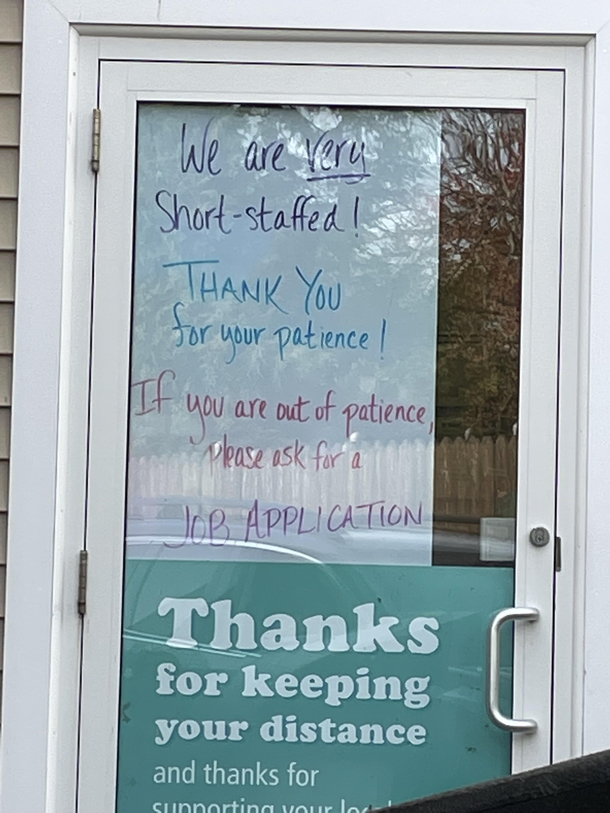 We are very
Short-staffed!
THANK YOU
for your patience!
If you are out of patience,
please ask for a
JOB APPLICATION
Thanks
for keeping
your distance
and thanks for
supporting your